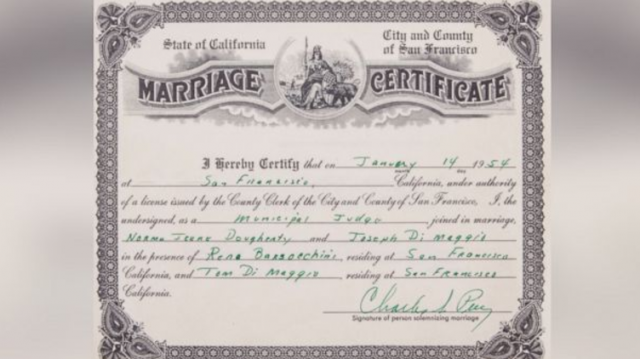 State of California
City and County
of San Francisco
MARRIAGE CERTIFICATE
I Hereby Certify that on January 14 1954
at San Francisco, California, under authority
of a license issued by the County Clerk of the City and County of San Francisco, I, the
undersigned, as a Municipal Judge joined in marriage,
Norma Jeane Dougherty and Joseph Di Maggio
in the presence of Reno Barsocchini, residing at San Francisco
California, and Tom Di Maggio, residing at San Francisco
California.
Charles S. Perry
Signature of person solemnizing marriage